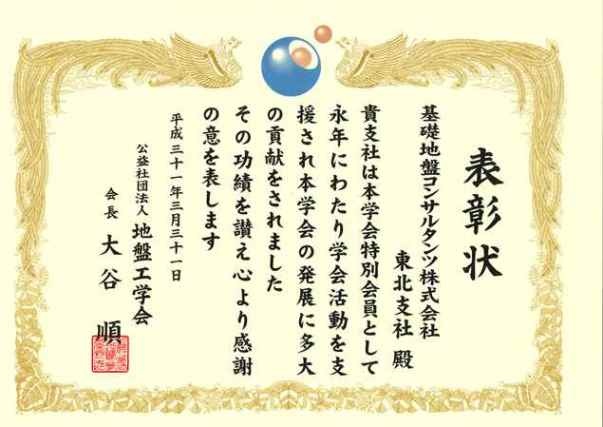 表彰状
基礎地盤コンサルタンツ株式会社
東北支社 殿
貴支社は本学会特別会員として
永年にわたり学会活動を支
援され本学会の発展に多大
の貢献をされました
その功績を讃え心より感謝
の意を表します
平成三十一年三月三十一日
公益社団法人 地盤工学会
会長 大谷 順